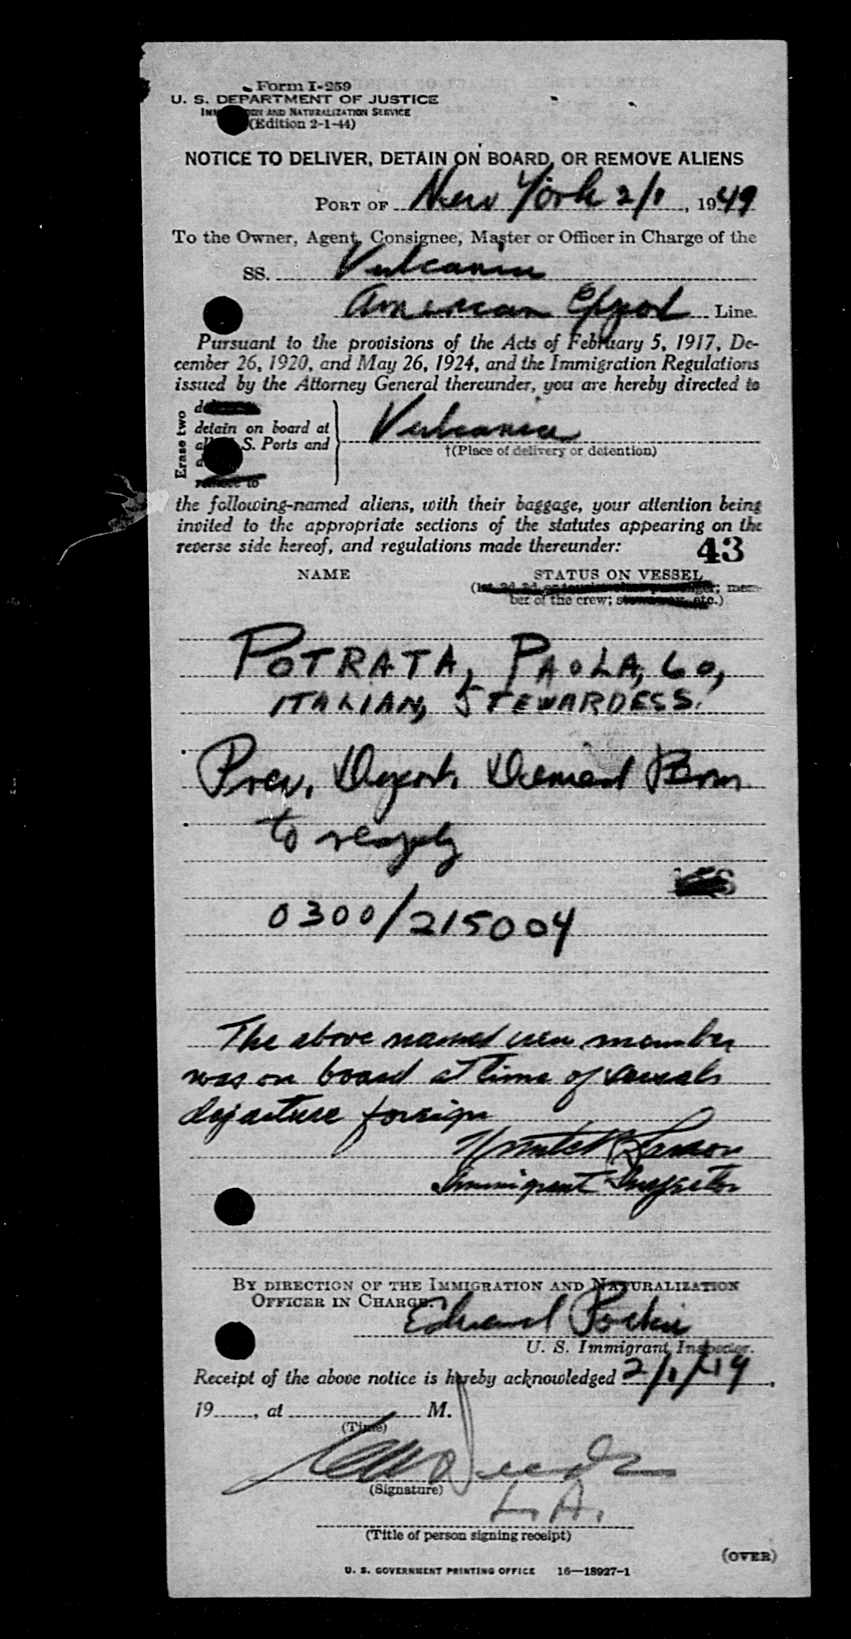 Form I-259
U. S. DEPARTMENT OF JUSTICE
IMMIGRATION AND NATURALIZATION SERVICE
(Edition 2-1-44)
NOTICE TO DELIVER, DETAIN ON BOARD, OR REMOVE ALIENS
PORT OF New York 2/1, 1949
To the Owner, Agent, Consignee, Master or Officer in Charge of the
SS. Vulcania
American Export Line.
Pursuant to the provisions of the Acts of February 5, 1917, De-
cember 26, 1920, and May 26, 1924, and the Immigration Regulations
issued by the Attorney General thereunder, you are hereby directed to
Erase two
detain on board at
all U. S. Ports and
remove to
Vulcania
†(Place of delivery or detention)
the following-named aliens, with their baggage, your attention being
invited to the appropriate sections of the statutes appearing on the
reverse side hereof, and regulations made thereunder:
43
NAME STATUS ON VESSEL
mem-
ber of the crew; etc.)
POTRATA, PAOLA, 60,
ITALIAN, STEWARDESS.
Prev. Deport. Denied Perm
to reapply
0300/215004
The above named crew member
was on board at time of vessels
departure foreign
Immigrant Inspector
BY DIRECTION OF THE IMMIGRATION AND NATURALIZATION
OFFICER IN CHARGE:
Edward
U. S. Immigrant Inspector.
Receipt of the above notice is hereby acknowledged 2/1/49,
19, at M.
(Time)
(Signature)
L.A.
(Title of person signing receipt)
(OVER)
U. S. GOVERNMENT PRINTING OFFICE 16—18927-1